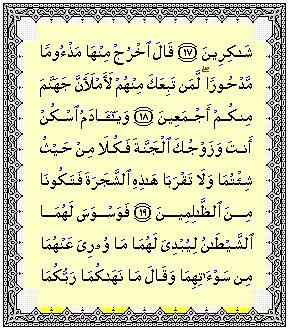 شَـٰكِرِينَ ﴿١٧﴾ قَالَ ٱخْرُجْ مِنْهَا مَذْءُومًا
مَّدْحُورًا ۖ لَّمَن تَبِعَكَ مِنْهُمْ لَأَمْلَأَنَّ جَهَنَّمَ
مِنكُمْ أَجْمَعِينَ ﴿١٨﴾ وَيَـٰٓـَٔادَمُ ٱسْكُنْ
أَنتَ وَزَوْجُكَ ٱلْجَنَّةَ فَكُلَا مِنْ حَيْثُ
شِئْتُمَا وَلَا تَقْرَبَا هَـٰذِهِ ٱلشَّجَرَةَ فَتَكُونَا
مِنَ ٱلظَّـٰلِمِينَ ﴿١٩﴾ فَوَسْوَسَ لَهُمَا
ٱلشَّيْطَـٰنُ لِيُبْدِىَ لَهُمَا مَا وُۥرِىَ عَنْهُمَا
مِن سَوْءَٰتِهِمَا وَقَالَ مَا نَهَىٰكُمَا رَبُّكُمَا